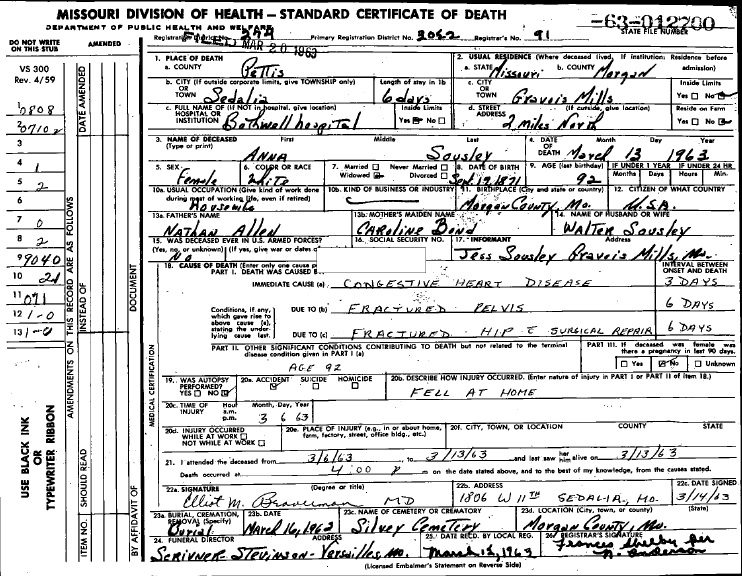 MISSOURI DIVISION OF HEALTH — STANDARD CERTIFICATE OF DEATH
DEPARTMENT OF PUBLIC HEALTH AND WELFARE
-63-012200
STATE FILE NUMBER
FILED MAR 20 1963
Primary Registration District No. 2062 Registrar's No. 91
DO NOT WRITE ON THIS STUB
AMENDED
VS 300
Rev. 4/59
1 0808
2 07102
3
4 1
5 2
6
7 0
8 2
9 9040
10 21
11 071
12 1-0
13 1-0
DATE AMENDED
AMENDMENTS ON THIS RECORD ARE AS FOLLOWS
INSTEAD OF
DOCUMENT
SHOULD READ
ITEM NO.
BY AFFIDAVIT OF
USE BLACK INK OR TYPEWRITER RIBBON
MEDICAL CERTIFICATION
1. PLACE OF DEATH
a. COUNTY Pettis
2. USUAL RESIDENCE (Where deceased lived. If institution: Residence before admission)
a. STATE Missouri b. COUNTY Morgan
b. CITY (If outside corporate limits, give TOWNSHIP only) OR TOWN Sedalia
Length of stay in 1b 6 days
c. CITY OR TOWN Gravois Mills
Inside Limits Yes No
c. FULL NAME OF (If NOT in hospital, give location) HOSPITAL OR INSTITUTION Bothwell hospital
Inside Limits Yes No
d. STREET ADDRESS (If outside, give location) 2 miles North
Reside on Farm Yes No
3. NAME OF DECEASED (Type or print) First Middle Last
ANNA Sousley
4. DATE OF DEATH Month Day Year
March 13 1963
5. SEX Female
6. COLOR OR RACE White
7. Married Never Married Widowed Divorced
8. DATE OF BIRTH Sep. 19, 1871
9. AGE (last birthday) 92
IF UNDER 1 YEAR Months Days
IF UNDER 24 HR. Hours Min.
10a. USUAL OCCUPATION (Give kind of work done during most of working life, even if retired) Housewife
10b. KIND OF BUSINESS OR INDUSTRY
11. BIRTHPLACE (City and state or country) Morgan County, Mo.
12. CITIZEN OF WHAT COUNTRY U.S.A.
13a. FATHER'S NAME Nathan Allen
13b. MOTHER'S MAIDEN NAME Caroline Bond
14. NAME OF HUSBAND OR WIFE Walter Sousley
15. WAS DECEASED EVER IN U.S. ARMED FORCES? (Yes, no, or unknown) (If yes, give war or dates of No
16. SOCIAL SECURITY NO.
17. INFORMANT Address
Jess Sousley Gravois Mills, Mo.
18. CAUSE OF DEATH (Enter only one cause p
PART I. DEATH WAS CAUSED B
INTERVAL BETWEEN ONSET AND DEATH
IMMEDIATE CAUSE (a) CONGESTIVE HEART DISEASE 3 DAYS
Conditions, if any, which gave rise to above cause (a), stating the underlying cause last.
DUE TO (b) FRACTURED PELVIS 6 DAYS
DUE TO (c) FRACTURED HIP C SURGICAL REPAIR 6 DAYS
PART II. OTHER SIGNIFICANT CONDITIONS CONTRIBUTING TO DEATH but not related to the terminal disease condition given in PART I (a)
AGE 92
PART III. If deceased was female was there a pregnancy in last 90 days.
Yes No Unknown
19. WAS AUTOPSY PERFORMED? YES NO
20a. ACCIDENT SUICIDE HOMICIDE
20b. DESCRIBE HOW INJURY OCCURRED. (Enter nature of injury in PART I or PART II of item 18.)
FELL AT HOME
20c. TIME OF INJURY Hour a.m. p.m. Month, Day, Year
3 6 63
20d. INJURY OCCURRED WHILE AT WORK NOT WHILE AT WORK
20e. PLACE OF INJURY (e.g., in or about home, farm, factory, street, office bldg., etc.)
20f. CITY, TOWN, OR LOCATION COUNTY STATE
21. I attended the deceased from 3/6/63, to 3/13/63 and last saw her him alive on 3/13/63
Death occurred at 4:00 P m on the date stated above, and to the best of my knowledge, from the causes stated.
22a. SIGNATURE (Degree or title) Elliot M. Braverman MD
22b. ADDRESS 1806 W 11TH SEDALIA, MO.
22c. DATE SIGNED 3/14/63
23a. BURIAL, CREMATION, REMOVAL (Specify) Burial
23b. DATE March 16, 1963
23c. NAME OF CEMETERY OR CREMATORY Silvey Cemetery
23d. LOCATION (City, town, or county) (State) Morgan County, Mo.
24. FUNERAL DIRECTOR ADDRESS
Scrivner Stevinson - Versailles, Mo.
25. DATE RECD. BY LOCAL REG. March 15, 1963
26. REGISTRAR'S SIGNATURE Frances Shelby per N. Anderson
(Licensed Embalmer's Statement on Reverse Side)